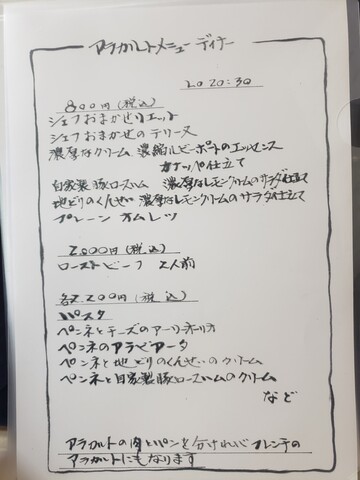 アラカルトメニュー ディナー
LO 20:30
800円(税込)
シェフおまかせリエット
シェフおまかせのテリーヌ
濃厚なクリーム 濃縮ルビーポートのエッセンス
カナッペ仕立て
自家製豚ロースハム 濃厚なレモンクリームのサラダ仕立て
地どりのくんせい 濃厚なレモンクリームのサラダ仕立て
プレーンオムレツ
2,000円(税込)
ローストビーフ 2人前
各2,200円(税込)
パスタ
ペンネとチーズのアーリオ・オリオ
ペンネのアラビアータ
ペンネと地どりのくんせいのクリーム
ペンネと自家製豚ロースハムのクリーム
など
アラカルトの肉とパンを分ければフレンチの
アラカルトにもなります